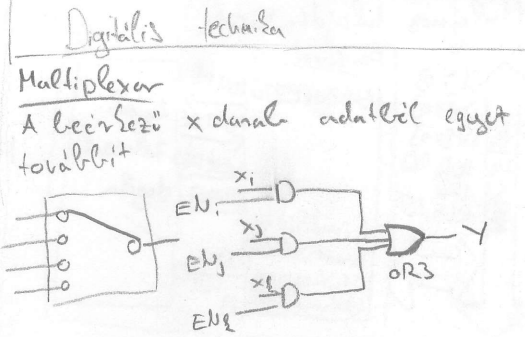 Digitális technika
Multiplexer
A beérkező x darab adatból egyet
továbbít
xi
ENi
xj
ENj
xk
ENk
Y
OR3